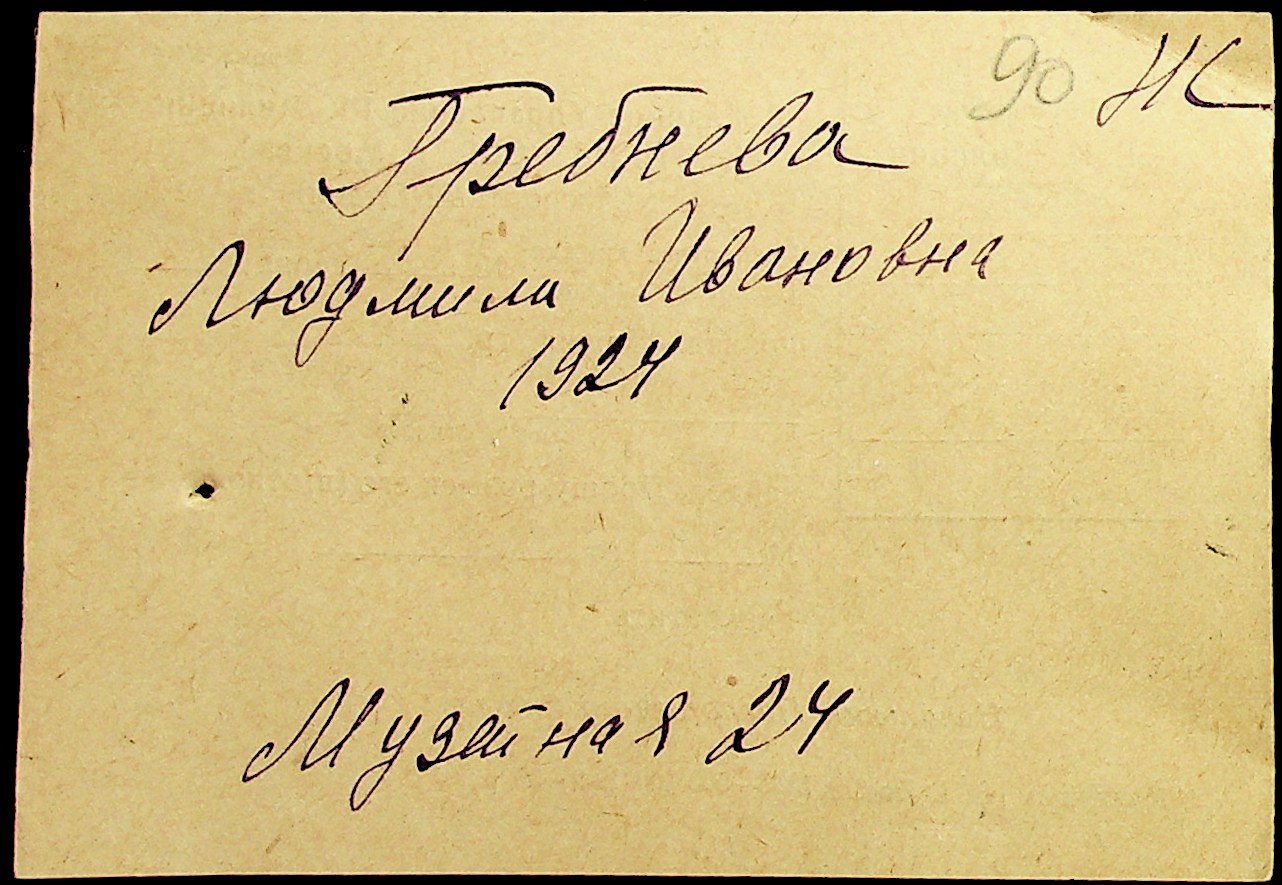 90 НС
Гребнева
Людмила Ивановна
1924
Музейная 24